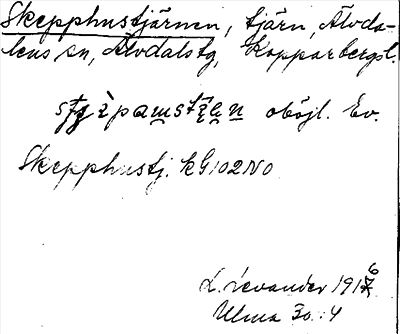 Skepphustjärnen, tjärn, Älvda-
lens sn, Älvdalstg, Kopparbergsl.
obojl. Ev.
Skepphustj. kG102NO
L. Levander 1916
Ulma 30:4